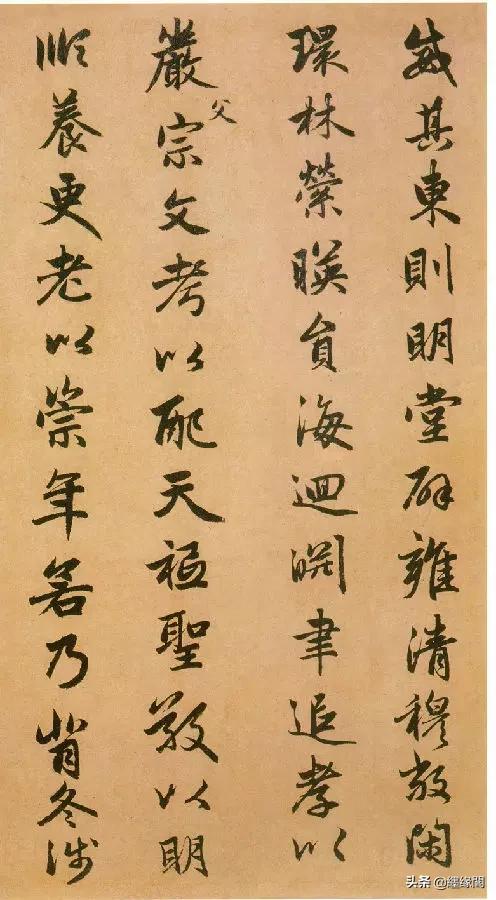 威其東則明堂辟雍清穆敞閑
環林縈暎員海迴淵聿追孝以
嚴父宗文考以配天祗聖敬以明
順養更老以崇年若乃背冬涉
头条